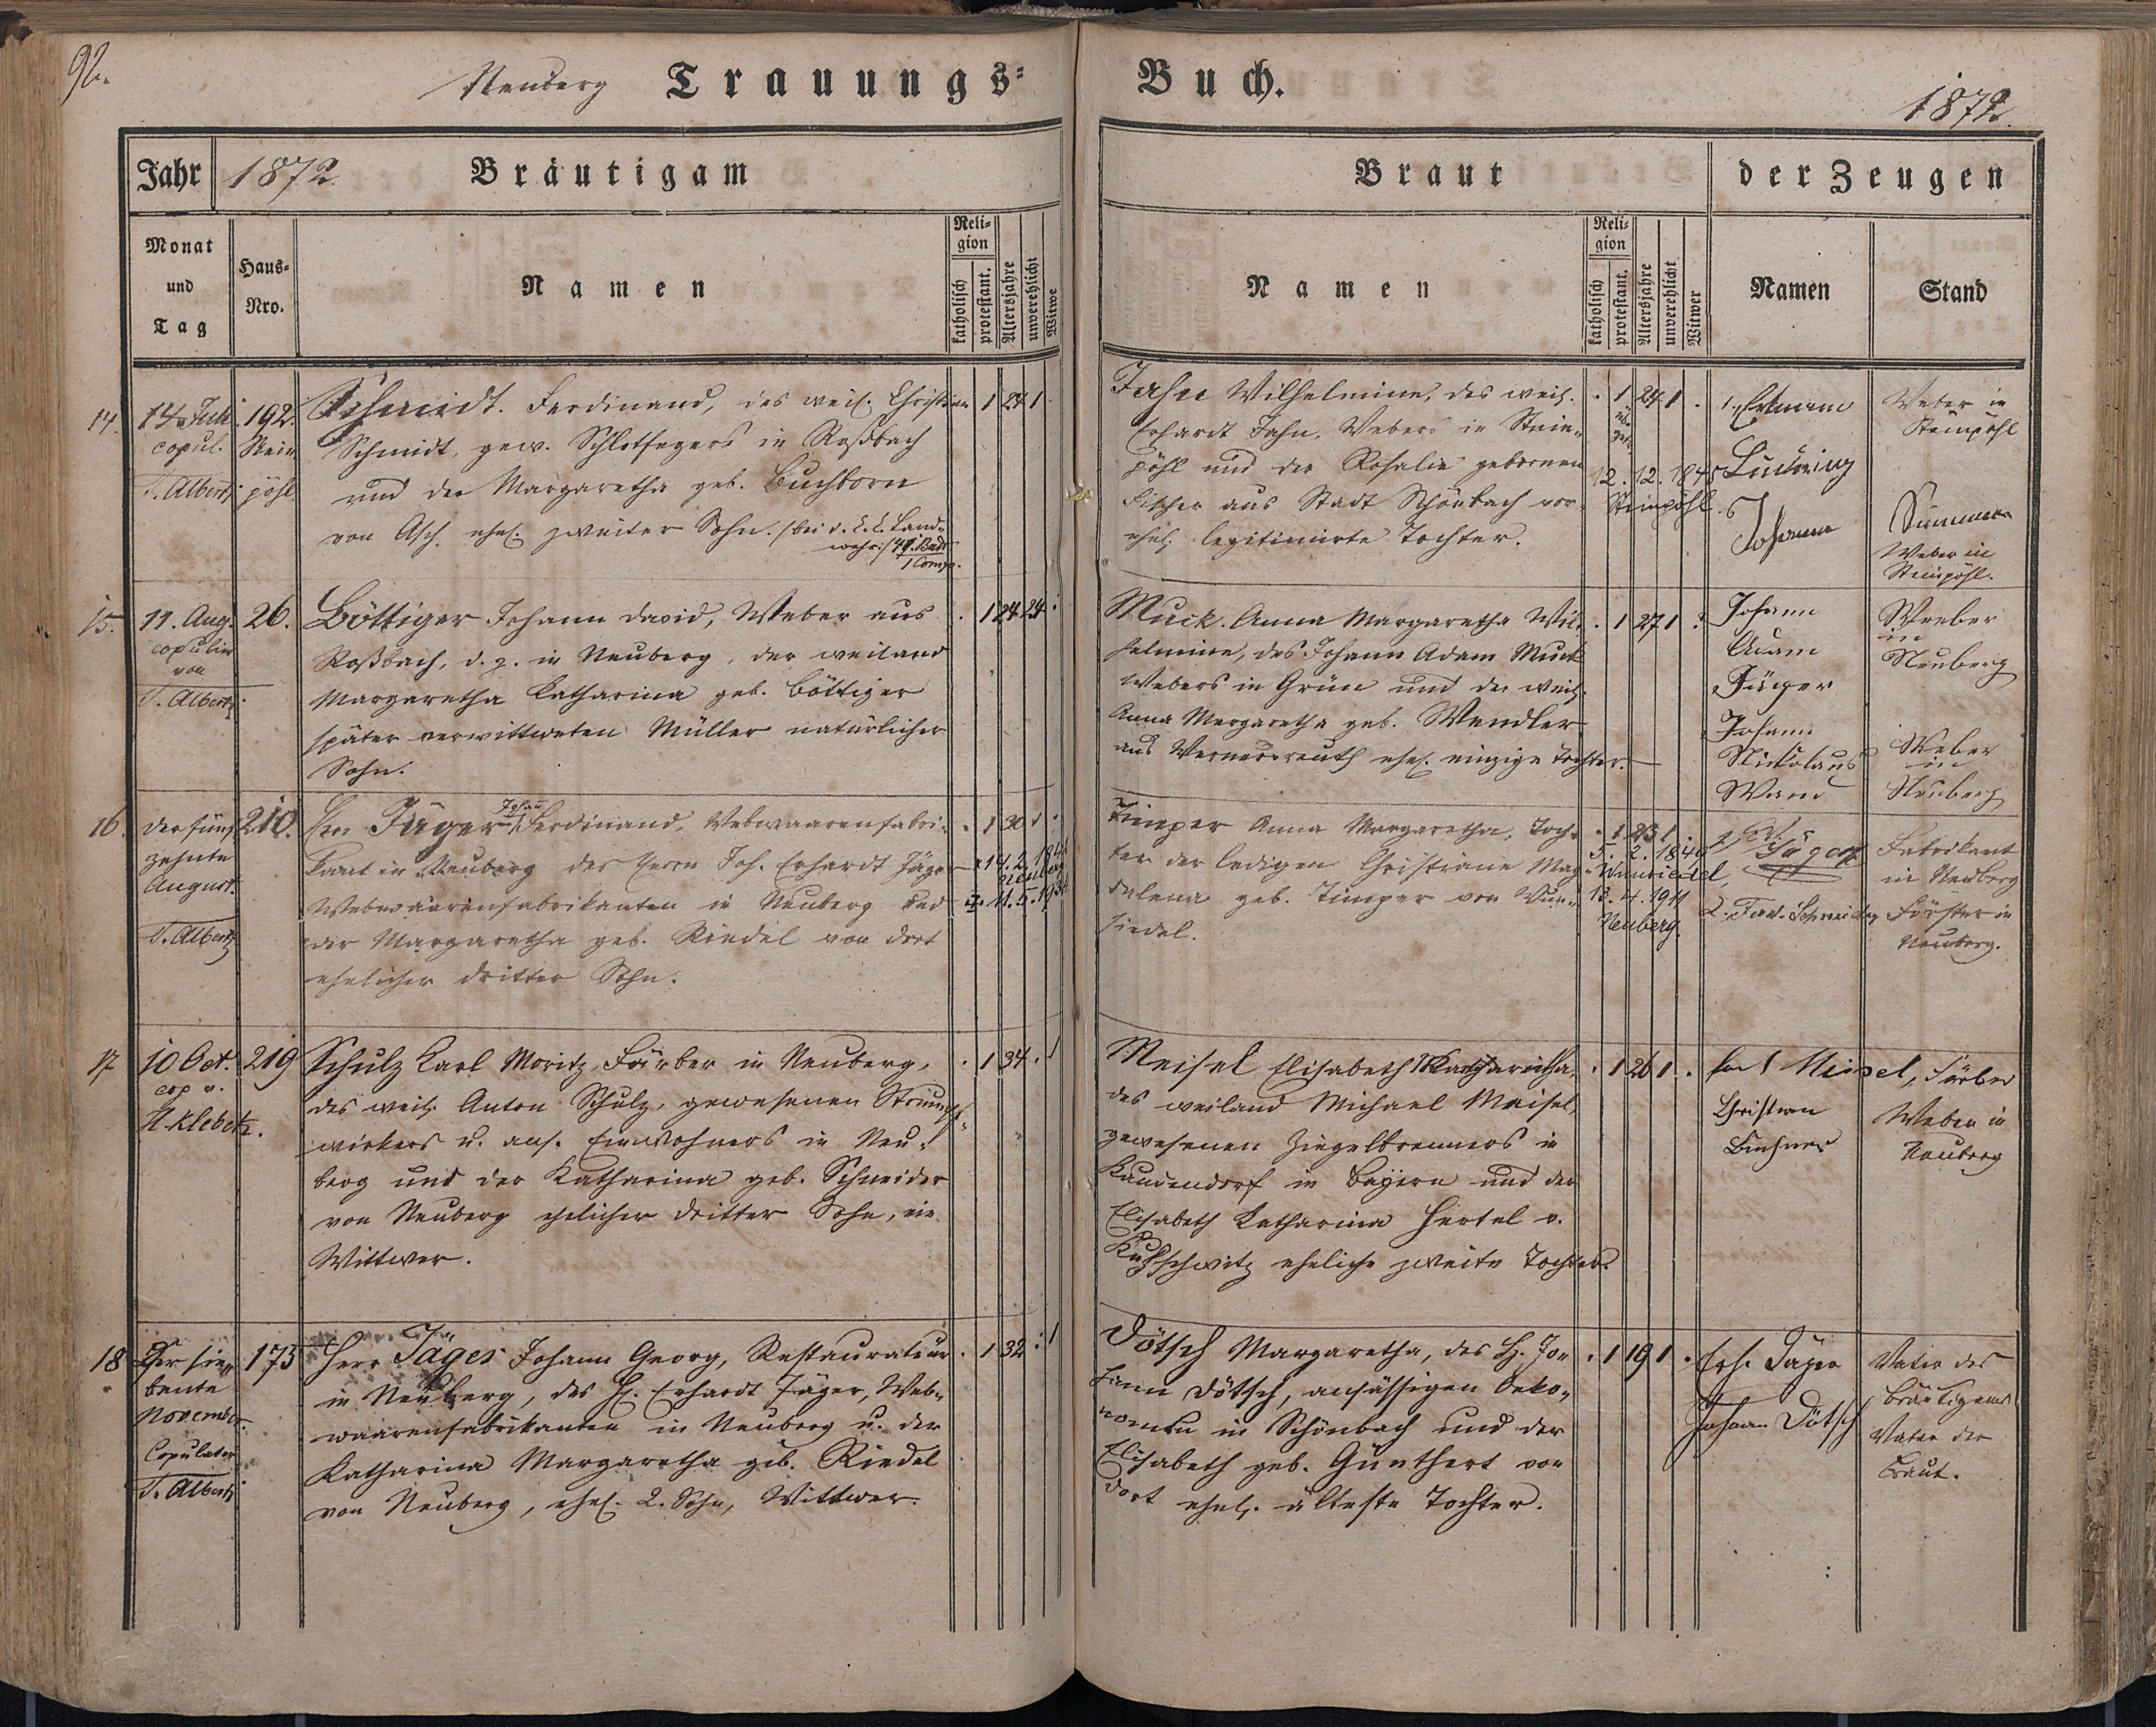 92.
Neuberg Trauungs-
Buch.
1872.
Jahr 1872. Bräutigam
Braut
der Zeugen
Monat
und
Tag
Haus-
Nro.
Namen
Reli-
gion
katholisch
protestant.
Altersjahre
unverehlicht
Witwe
Namen
Reli-
gion
katholisch
protestant.
Altersjahre
unverehlicht
Witwer
Namen
Stand
14. 14. Juli 192.
copul. Stein
T. Alberti pöhl
Schmidt. Ferdinand, des weil. Christian 1 24 1
Schmidt, gew. Schlotfegers in Roßbach
und der Margaretha geb. Buchborn
von Asch ehel. zweiter Sohn. /bei d. k. k. Land-
wehr/
Jahn Wilhelmine, des weil. . 1 24 1 .
Erhardt Jahn, Webers in Stein-
pöhl und der Rosalie gebornen
Fischer aus Stadt Schönbach vor-
ehel. legitimirte Tochter.
12. 12. 1845
Steinpöhl.
Ludwig
Johann
Weber in
Steinpöhl
Weber in
Steinpöhl.
15. 11. Aug. 26.
copulirt
von
T. Alberti
Böttiger Johann David, Weber aus . 1 24 24 .
Roßbach, d. z. in Neuberg, der weiland
Margaretha Katharina geb. Böttiger
später verwittweten Müller natürlicher
Sohn.
Muck. Anna Margaretha Wil- . 1 27 1 .
helmine, des Johann Adam Muck
Webers in Grün und der weil.
Anna Margaretha geb. Wendler
aus Wernersreuth ehel. einzige Tochter.
Johann
Adam
Jäger
Johann
Nickolaus
Wand
Weber
in
Neuberg
Weber
in
Neuberg
16. Der fünf- 210.
zehnte
August.
T. Alberti
Herr Jäger Johann Ferdinand, Webwaarenfabri- . 1 30 1 .
kant in Neuberg des Herrn Joh. Erhardt Jäger
Webwaarenfabrikanten in Neuberg und
der Margaretha geb. Riedel von dort
ehelicher dritter Sohn.
Neuberg
11. 5. 1934
Timper Anna Margaretha, Toch- . 1 23 1 .
ter der ledigen Christiane Mag-
dalena geb. Timper von Wun-
siedel.
5. 2. 1849
Wunsiedel,
13. 4. 1911
Neuberg.
Jäger
2. Ferd. Schneider
Fabrikant
in Neuberg
Förster in
Neuberg.
17 10 Oct. 219
cop v.
A. Klebek.
Schulz Karl Moritz, Färber in Neuberg, . 1 34 . 1
des weil. Anton Schulz, gewesenen Strumpf-
wirkers u. ans. Einwohners in Neu-
berg und der Katharina geb. Schneider
von Neuberg ehelicher dritter Sohn, ein
Wittwer.
Meisel Elisabeth Katharina, . 1 26 1 .
des weiland Michael Meisel,
gewesenen Ziegelbrenners in
Kautendorf in Bayern und der
Elisabeth Katharina Hertel v.
ehelich zweite Tochter.
Karl Meisel, Färber
Christian
Weber in
Neuberg
18. Der sie- 175
bente
November.
Copulator
T. Alberti
Herr Jäger Johann Georg, Restaurateur . 1 32 . 1
in Neuberg, des H. Erhardt Jäger, Web-
waarenfabrikanten in Neuberg u. der
Katharina Margaretha geb. Riedel
von Neuberg, ehel. 2. Sohn, Wittwer.
Dötsch Margaretha, des H. Jo- . 1 19 1 .
hann Dötsch, ansässigen Oeko-
nomen in Schönbach und der
Elisabeth geb. Günthert von
dort ehel. älteste Tochter.
Erh. Jäger
Johann Dötsch
Vater des
Bräutigams
Vater der
Braut.